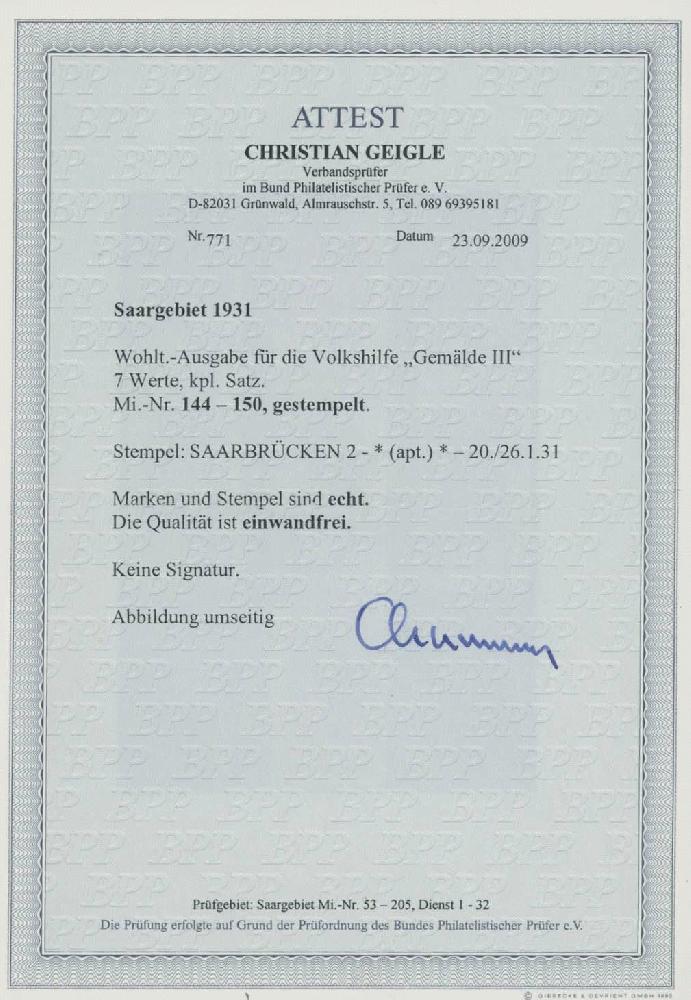 ATTEST
CHRISTIAN GEIGLE
Verbandsprüfer
im Bund Philatelistischer Prüfer e. V.
D-82031 Grünwald, Almrauschstr. 5, Tel. 089 69395181
Nr. 771 Datum 23.09.2009
Saargebiet 1931
Wohlt.-Ausgabe für die Volkshilfe „Gemälde III“
7 Werte, kpl. Satz.
Mi.-Nr. 144 – 150, gestempelt.
Stempel: SAARBRÜCKEN 2 - * (apt.) * – 20./26.1.31
Marken und Stempel sind echt.
Die Qualität ist einwandfrei.
Keine Signatur.
Abbildung umseitig
Prüfgebiet: Saargebiet Mi.-Nr. 53 – 205, Dienst 1 - 32
Die Prüfung erfolgte auf Grund der Prüfordnung des Bundes Philatelistischer Prüfer e.V.
© GIESECKE & DEVRIENT GMBH